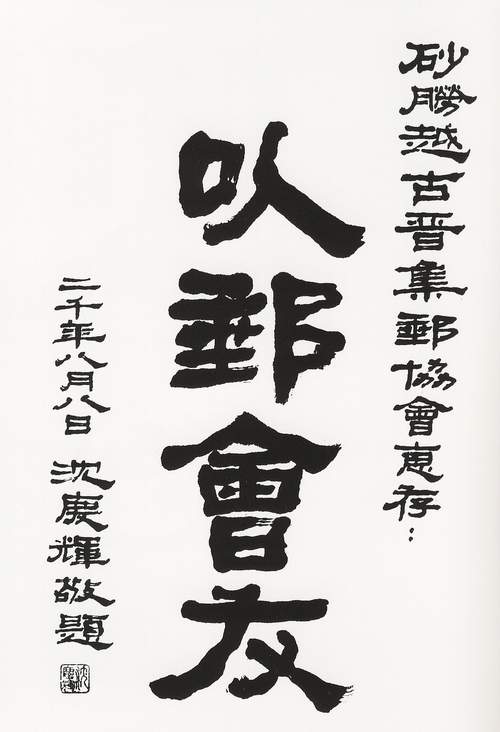 砂朥越古晋集郵協會惠存：
以郵會友
二千年八月八日 沈慶輝敬題